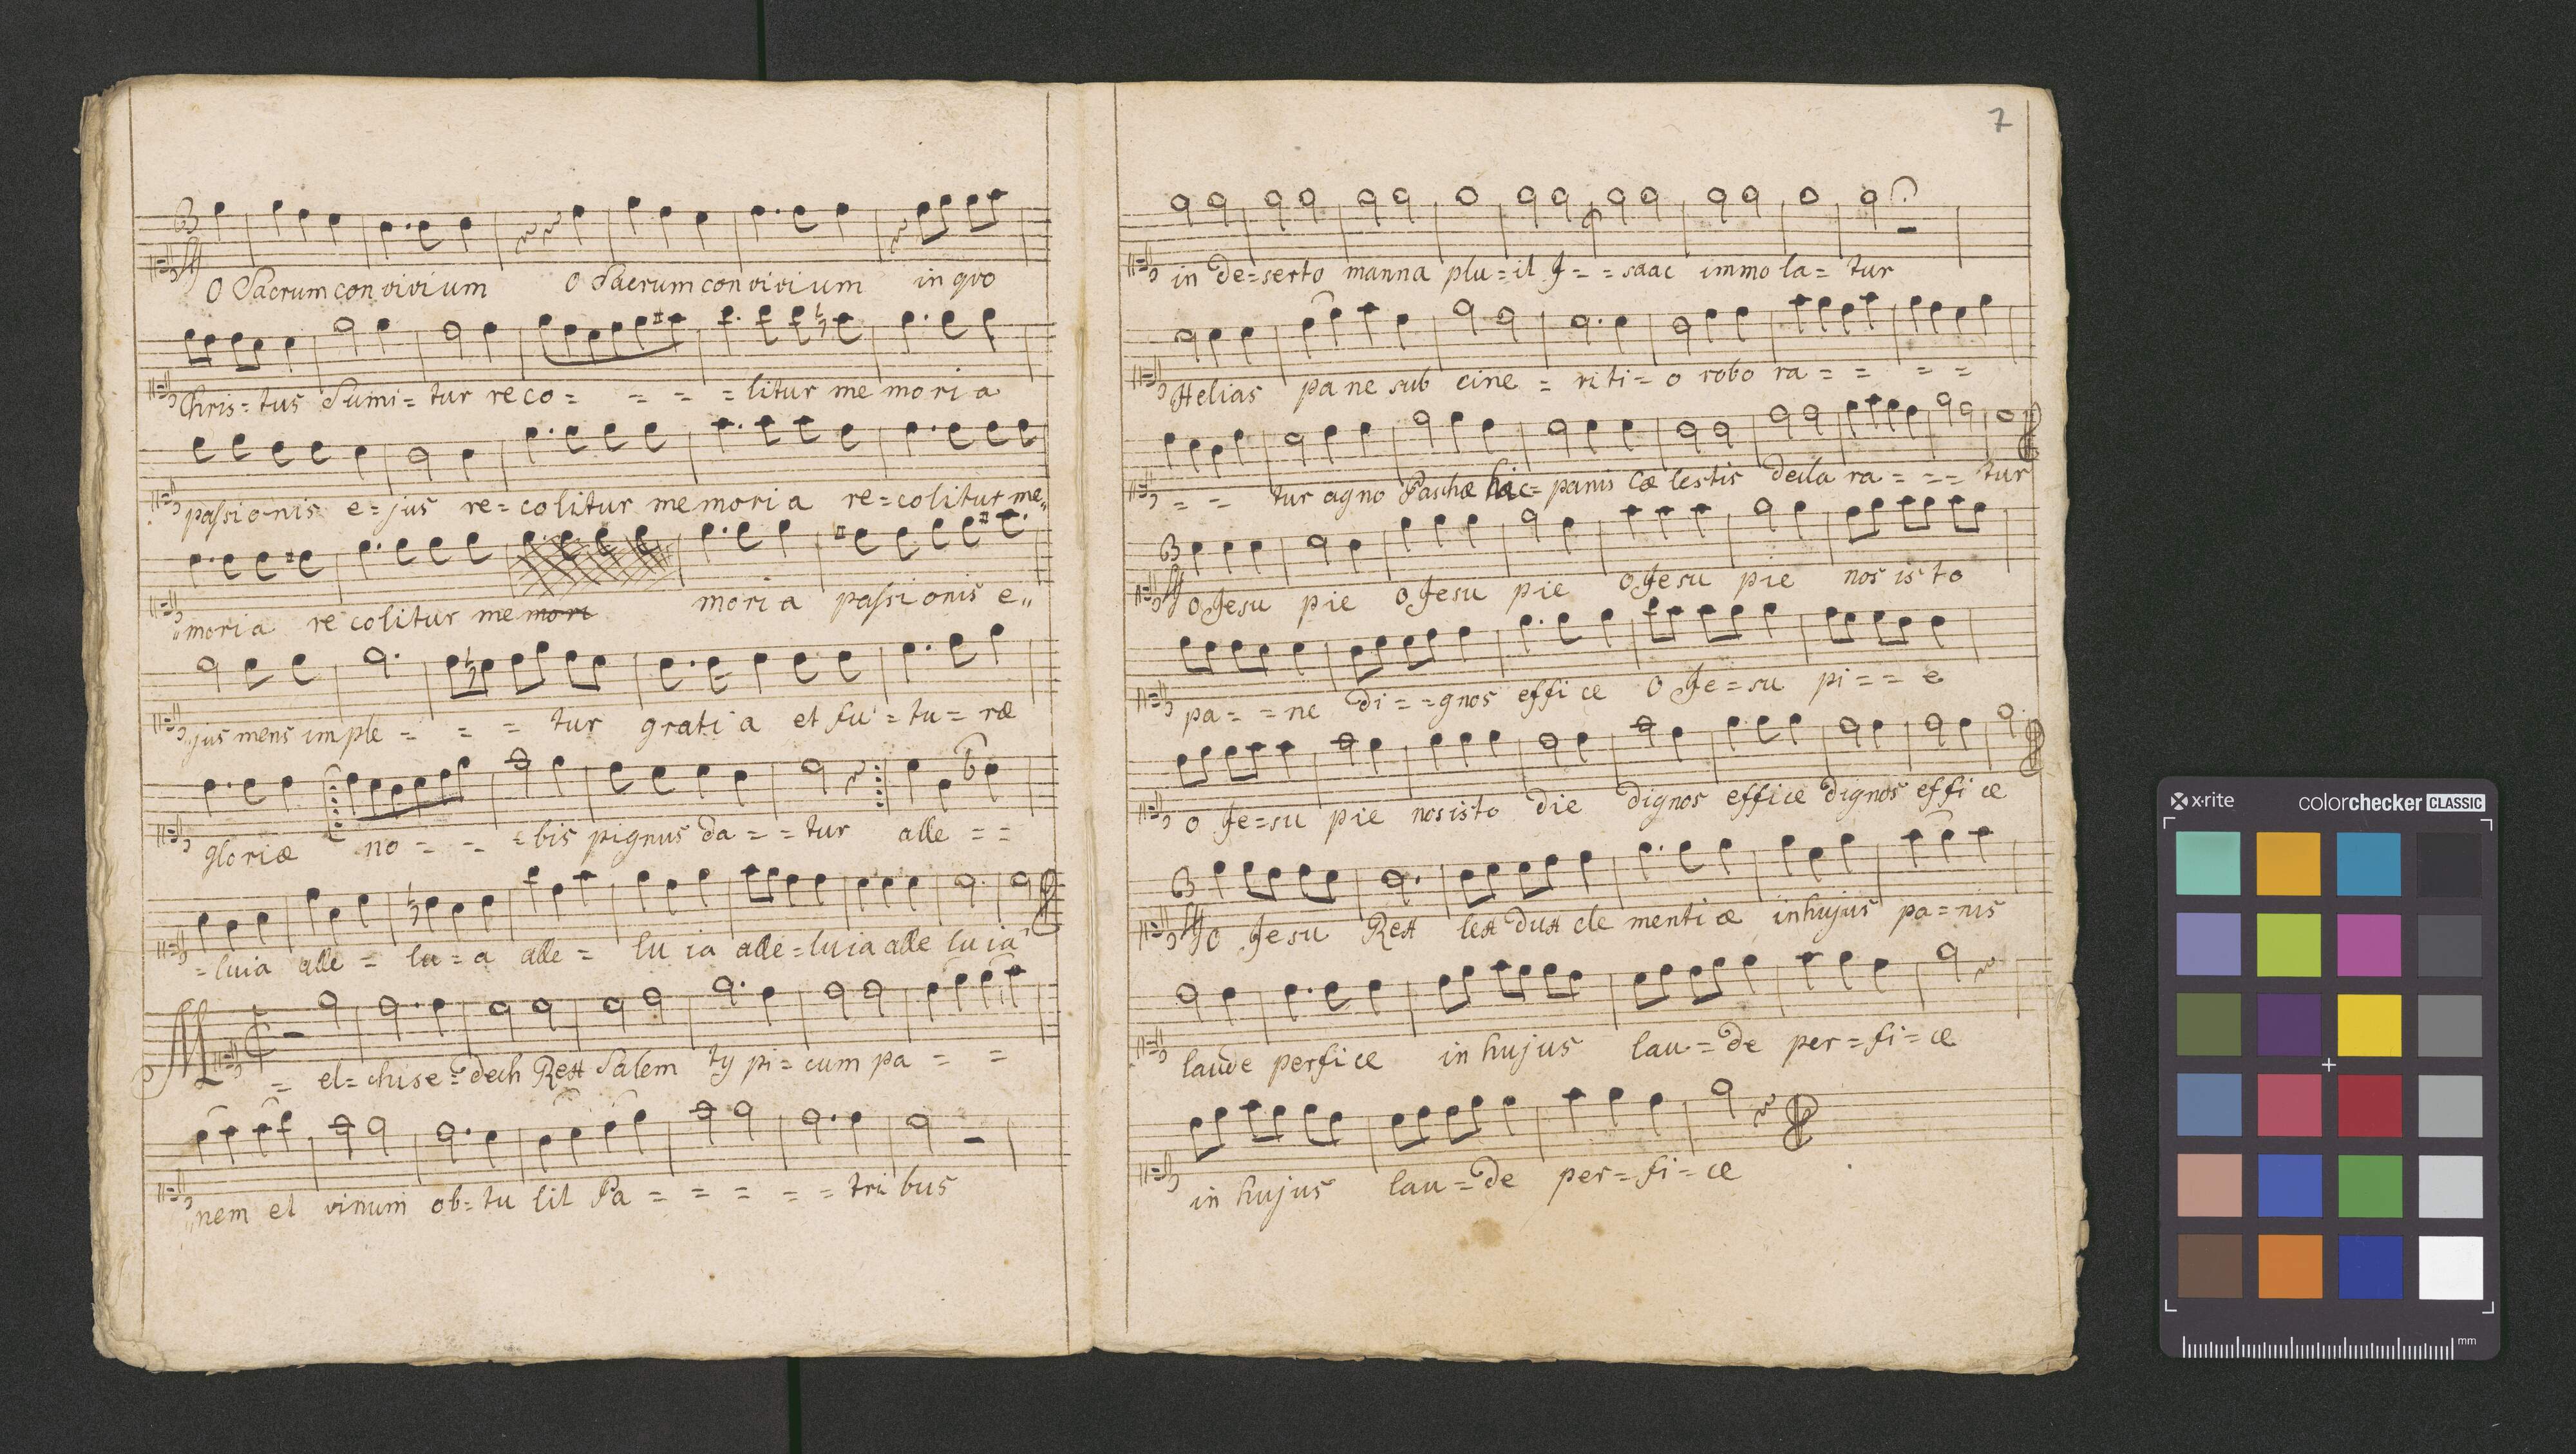 O Sacrum convivium O Sacrum convivium in quo
Chris=tus Sumi=tur reco= = = =litur memoria
passio-nis e=jus re=colitur memoria re=colitur me„
„moria recolitur memori moria passionis e„
„jus mens imple = = = tur gratia et fu=tu=ræ
gloriæ no= = =bis pignus da = = tur alle = =
=luia alle = lu=a alle = lu ia alle=luia alle luia
M= el=chise=dech Rex Salem ty pi=cum pa = =
„nem et vinum ob=tu lit Pa = = = = = tribus
7
in de=serto manna plu=it I= =saac immo la=tur
Helias pane sub cine = riti=o robo ra= = = =
= = tur agno Paschæ hic= panis Cœlestis decla ra= = = tur
3 O Jesu pie O Jesu pie O Jesu pie nos isto
pa= =ne di= =gnos effice O Je=su pi= = e
O Je=su pie nos isto die dignos effice dignos effi ce
3 O Jesu Rex lex dux cle mentiæ in hujus pa=nis
laude perfice in hujus lau=de per=fi=ce
in hujus lau=de per=fi=ce
x·rite colorchecker CLASSIC
mm